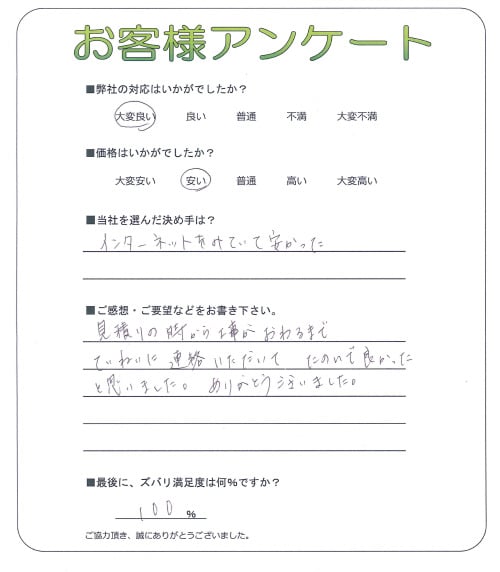 お客様アンケート
■弊社の対応はいかがでしたか？
大変良い 良い 普通 不満 大変不満
■価格はいかがでしたか？
大変安い 安い 普通 高い 大変高い
■当社を選んだ決め手は？
インターネットをみていて安かった
■ご感想・ご要望などをお書き下さい。
見積りの時から工事がおわるまで
ていねいに連絡いただいて たのんで良かった
と思いました。ありがとうございました。
■最後に、ズバリ満足度は何％ですか？
100 ％
ご協力頂き、誠にありがとうございました。